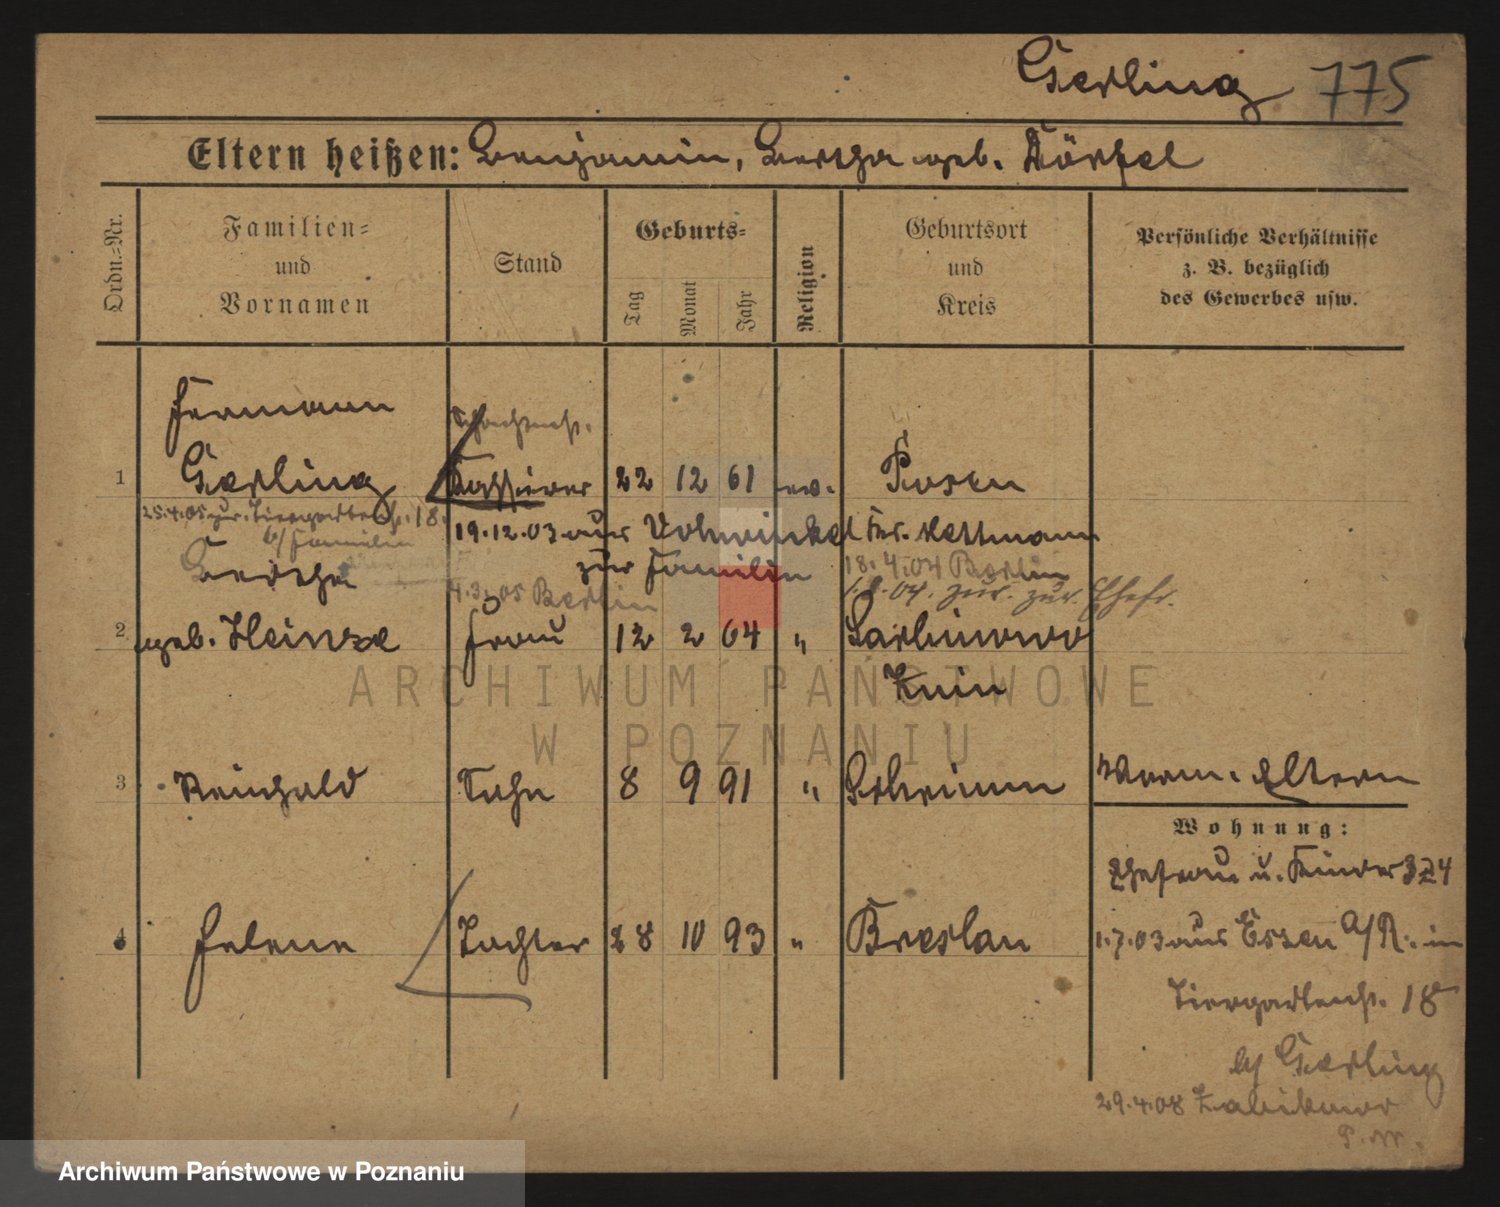 Gerling 775
Eltern heißen: Benjamin, Bertha geb. Dörfel
Ordn.-Nr.
Familien-
und
Vornamen
Stand
Geburts-
Tag
Monat
Jahr
Religion
Geburtsort
und
Kreis
Persönliche Verhältnisse
z. B. bezüglich
des Gewerbes usw.
Hermann
1 Gerling Kassierer 22 12 61 ev. Posen
25.4.05 zur. Tiergartenstr. 18.
b/ Familie
19.12.03 aus Vohwinkel Kr. Mettmann
zur Familie
18.4.04 Berlin
4.3.05 Berlin
1.8.04. zur. zur Ehefr.
Bertha
2 geb. Heinze Frau 12 2 64 " Sarbinowo
Znin
3 Reinhold Sohn 8 9 91 " Schrimm
Verm. Eltern
Wohnung:
Ehefrau u. Kinder 324
4 Helene Tochter 28 10 93 " Breslau
1.7.03 aus Essen a/R. in
Tiergartenstr. 18
b/ Gerling
29.4.08 Zabikowo
P. W.
ARCHIWUM PAŃSTWOWE
W POZNANIU
Archiwum Państwowe w Poznaniu